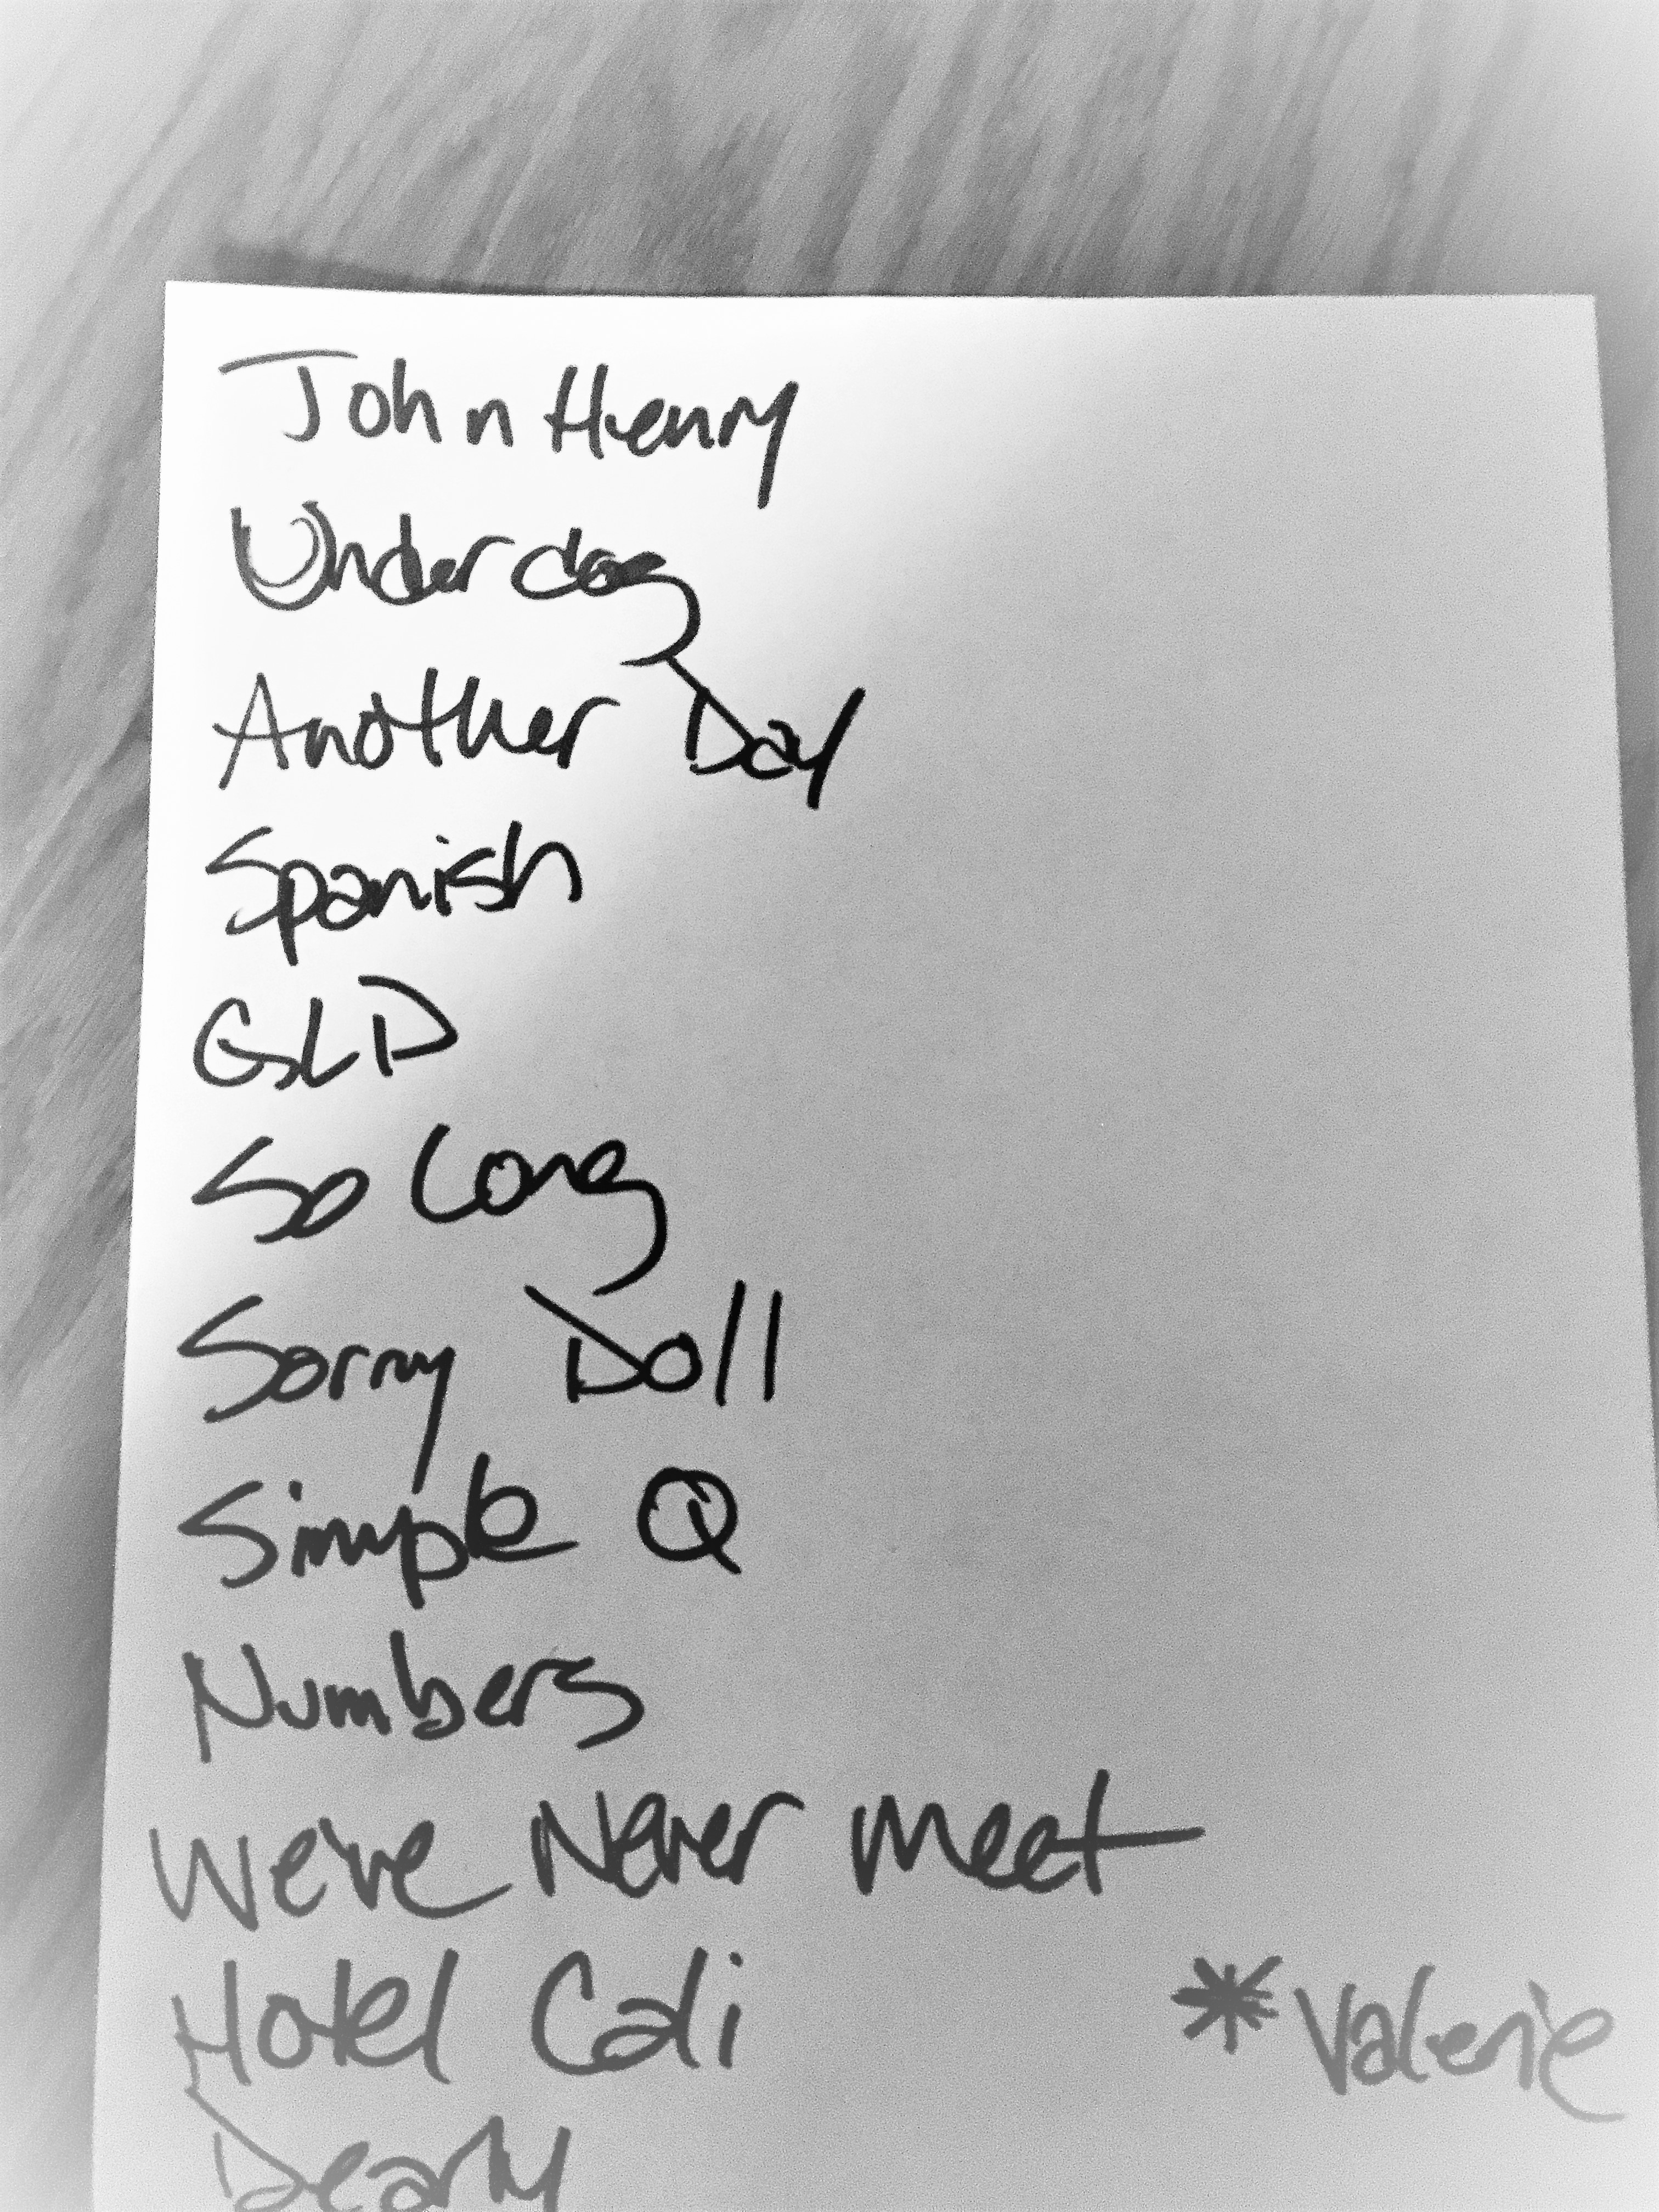 John Henry
Underdog
Another Day
Spanish
GLD
So Long
Sorry Doll
Simple Q
Numbers
We've Never Meet
Hotel Cali
* Valerie
Dearly